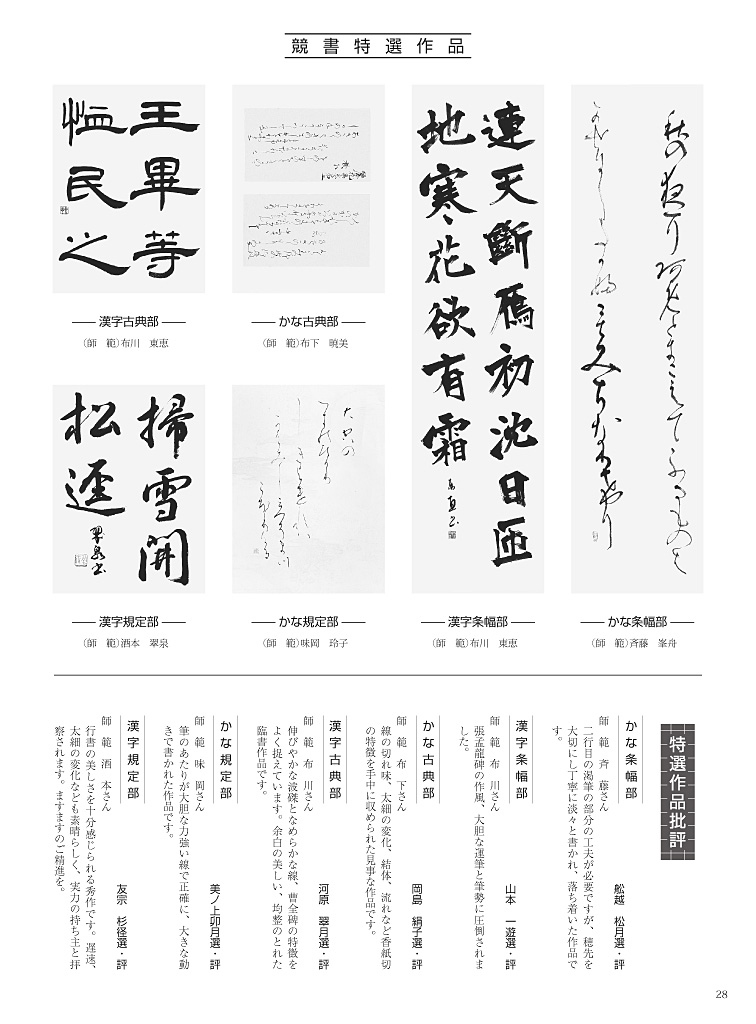 競書特選作品
連天斷鴈初沈日匝
地寒花欲有霜
王畢等
恤民之
掃雪開
松逕
翠泉書
漢字古典部
(師　範)布川　東恵
かな古典部
(師　範)布下　暁美
漢字規定部
(師　範)酒本　翠泉
かな規定部
(師　範)味岡　玲子
漢字条幅部
(師　範)布川　東恵
かな条幅部
(師　範)斉藤　峯舟
特選作品批評
かな条幅部
舩越　松月選・評
師　範　斉　藤さん
二行目の渇筆の部分の工夫が必要ですが、穂先を
大切にし丁寧に淡々と書かれ、落ち着いた作品で
す。
漢字条幅部
山本　一遊選・評
師　範　布　川さん
張孟龍碑の作風、大胆な運筆と筆勢に圧倒されま
した。
かな古典部
岡島　絹子選・評
師　範　布　下さん
線の切れ味、太細の変化、結体、流れなど香紙切
の特徴を手中に収められた見事な作品です。
漢字古典部
河原　翠月選・評
師　範　布　川さん
伸びやかな波磔となめらかな線、曹全碑の特徴を
よく捉えています。余白の美しい、均整のとれた
臨書作品です。
かな規定部
美ノ上卯月選・評
師　範　味　岡さん
筆のあたりが大胆な力強い線で正確に、大きな動
きで書かれた作品です。
漢字規定部
友宗　杉径選・評
師　範　酒　本さん
行書の美しさを十分感じられる秀作です。遅速、
太細の変化なども素晴らしく、実力の持ち主と拝
察されます。ますますのご精進を。
28